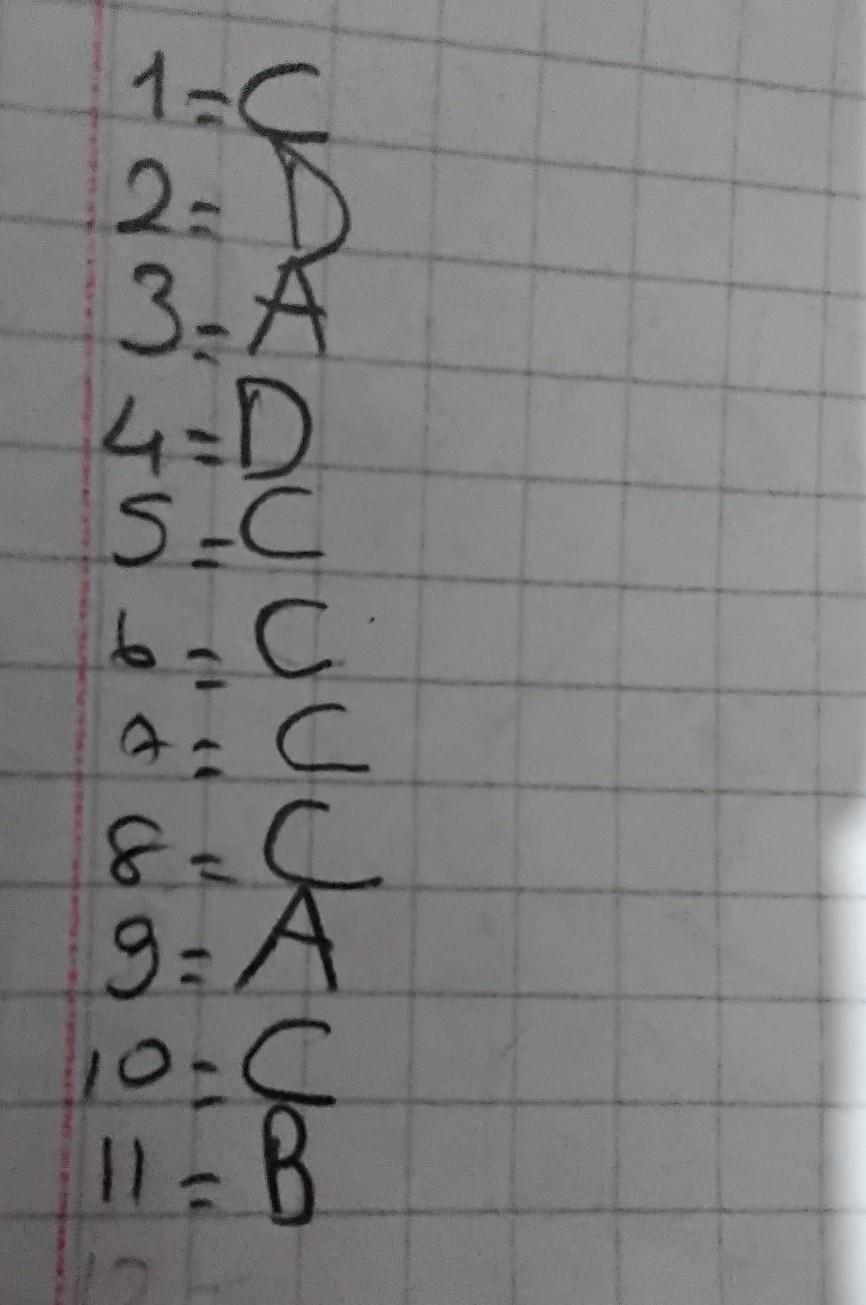 1=C
2=D
3=A
4=D
5=C
6=C
7=C
8=C
9=A
10=C
11=B